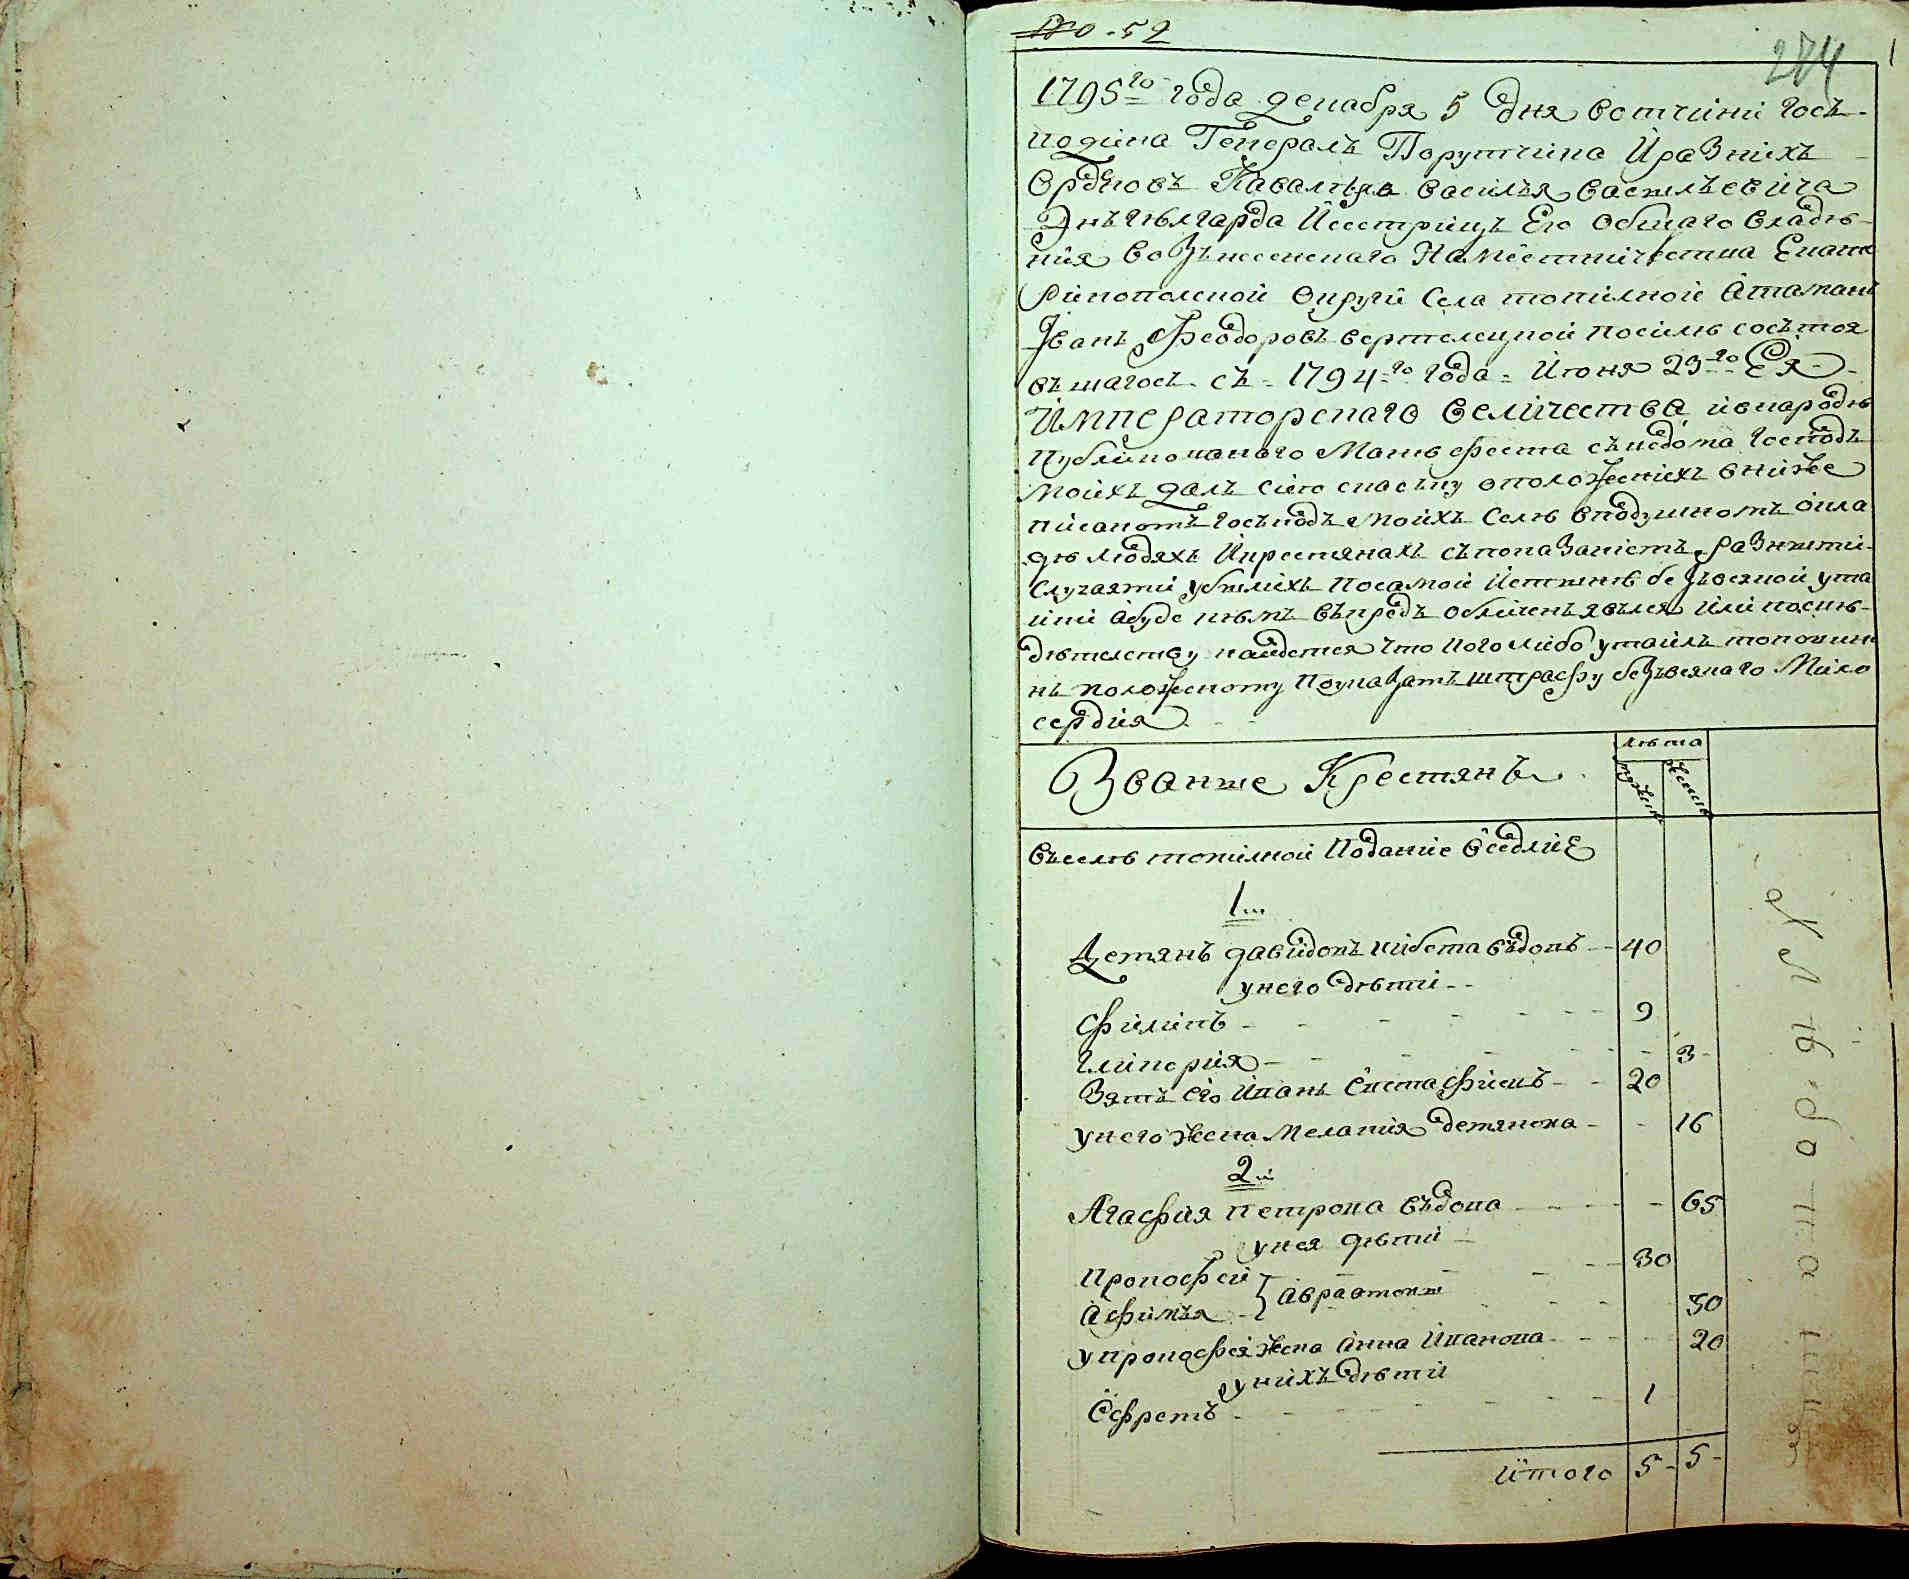 № 52
274
1795го года декабря 5 дня вотчини госъ-
подина Генералъ Порутчика И разнихъ
Орденовъ Кавалѣра василъя васильевича
Энъгелгарда Исестрицъ Его Обшаго владѣ-
ния воЗънесенскаго Наместничества Екате
ринополской Округи Села топилной Атаманъ
Іванъ Феодоровъ вертелецкой посилѣ состоя
въшагось съ 1794го года Июня 23го Ея
Императорскаго величества ивнародъ
Публикованого Манѣфеста съведома Господъ
моихъ далъ сию скаску ополоЖенихъ вниже
писаномъ госъподъ моихъ селѣ вподушномъ окла
дѣ людяхъ Икрестянахъ съпоказаніемъ разними
случаями убилихъ посамой Истинѣ безъвсякой ута
йки Абуде кѣмъ въпредъ обличенъ явълся Или посвѣ-
дѣтелству найдется что кого либо утаилъ топовин
нъ положеному Поуказамъ штрафу безъвсякаго Мило
сердия
Звание Крестянъ
лѣта
мужеск
женск
въселѣ топилной Поданіе оседлие
1й
Демянъ давидовъ кибета въдовъ - 40
унего дѣти
Филипъ - 9
Гликерия - 3
Зять его Иванъ Евстафиевъ - 20
унего жена Мелания демянова - 16
2й
Агафия петрова въдова - 65
унея дѣти
Прокофей - 30
Афимъя } Авраамови - 30
упрокофея жена Анна Иванова - 20
унихъ дѣти
Ефремъ - 1
Итого 5 - 5